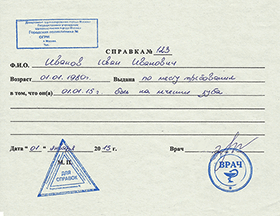 Городская поликлиника №
ОГРН
г. Москва
СПРАВКА № 123
Ф.И.О. Иванов Иван Иванович
Возраст 01.01.1980г. Выдана по месту требования
в том, что он(а) 01.01.15г. был на лечении зуба
Дата "01" января 2015 г. Врач
М.П.
ДЛЯ СПРАВОК
ВРАЧ